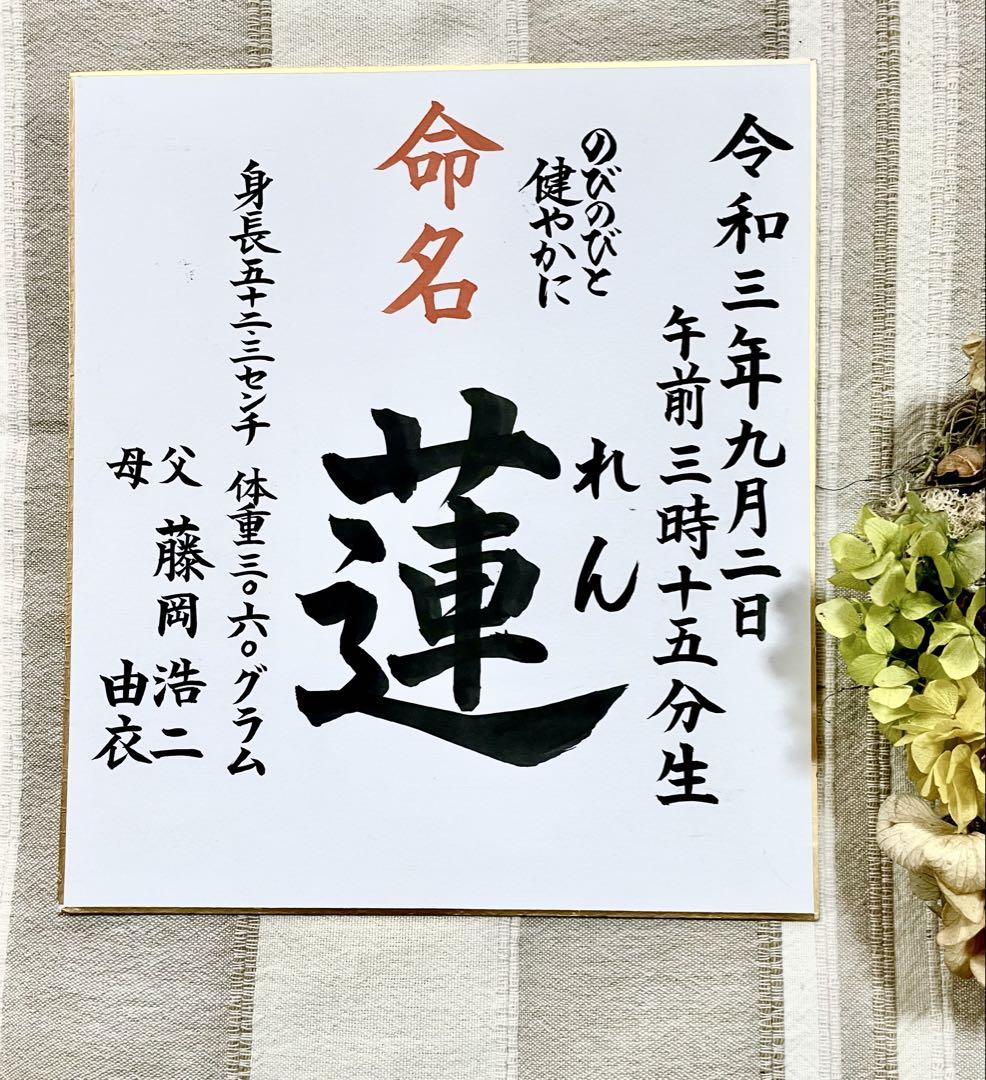 令和三年九月二日
午前三時十五分生
のびのびと
健やかに
れん
命名
蓮
身長五十二.三センチ 体重三〇六〇グラム
父 藤岡 浩二
母 由衣